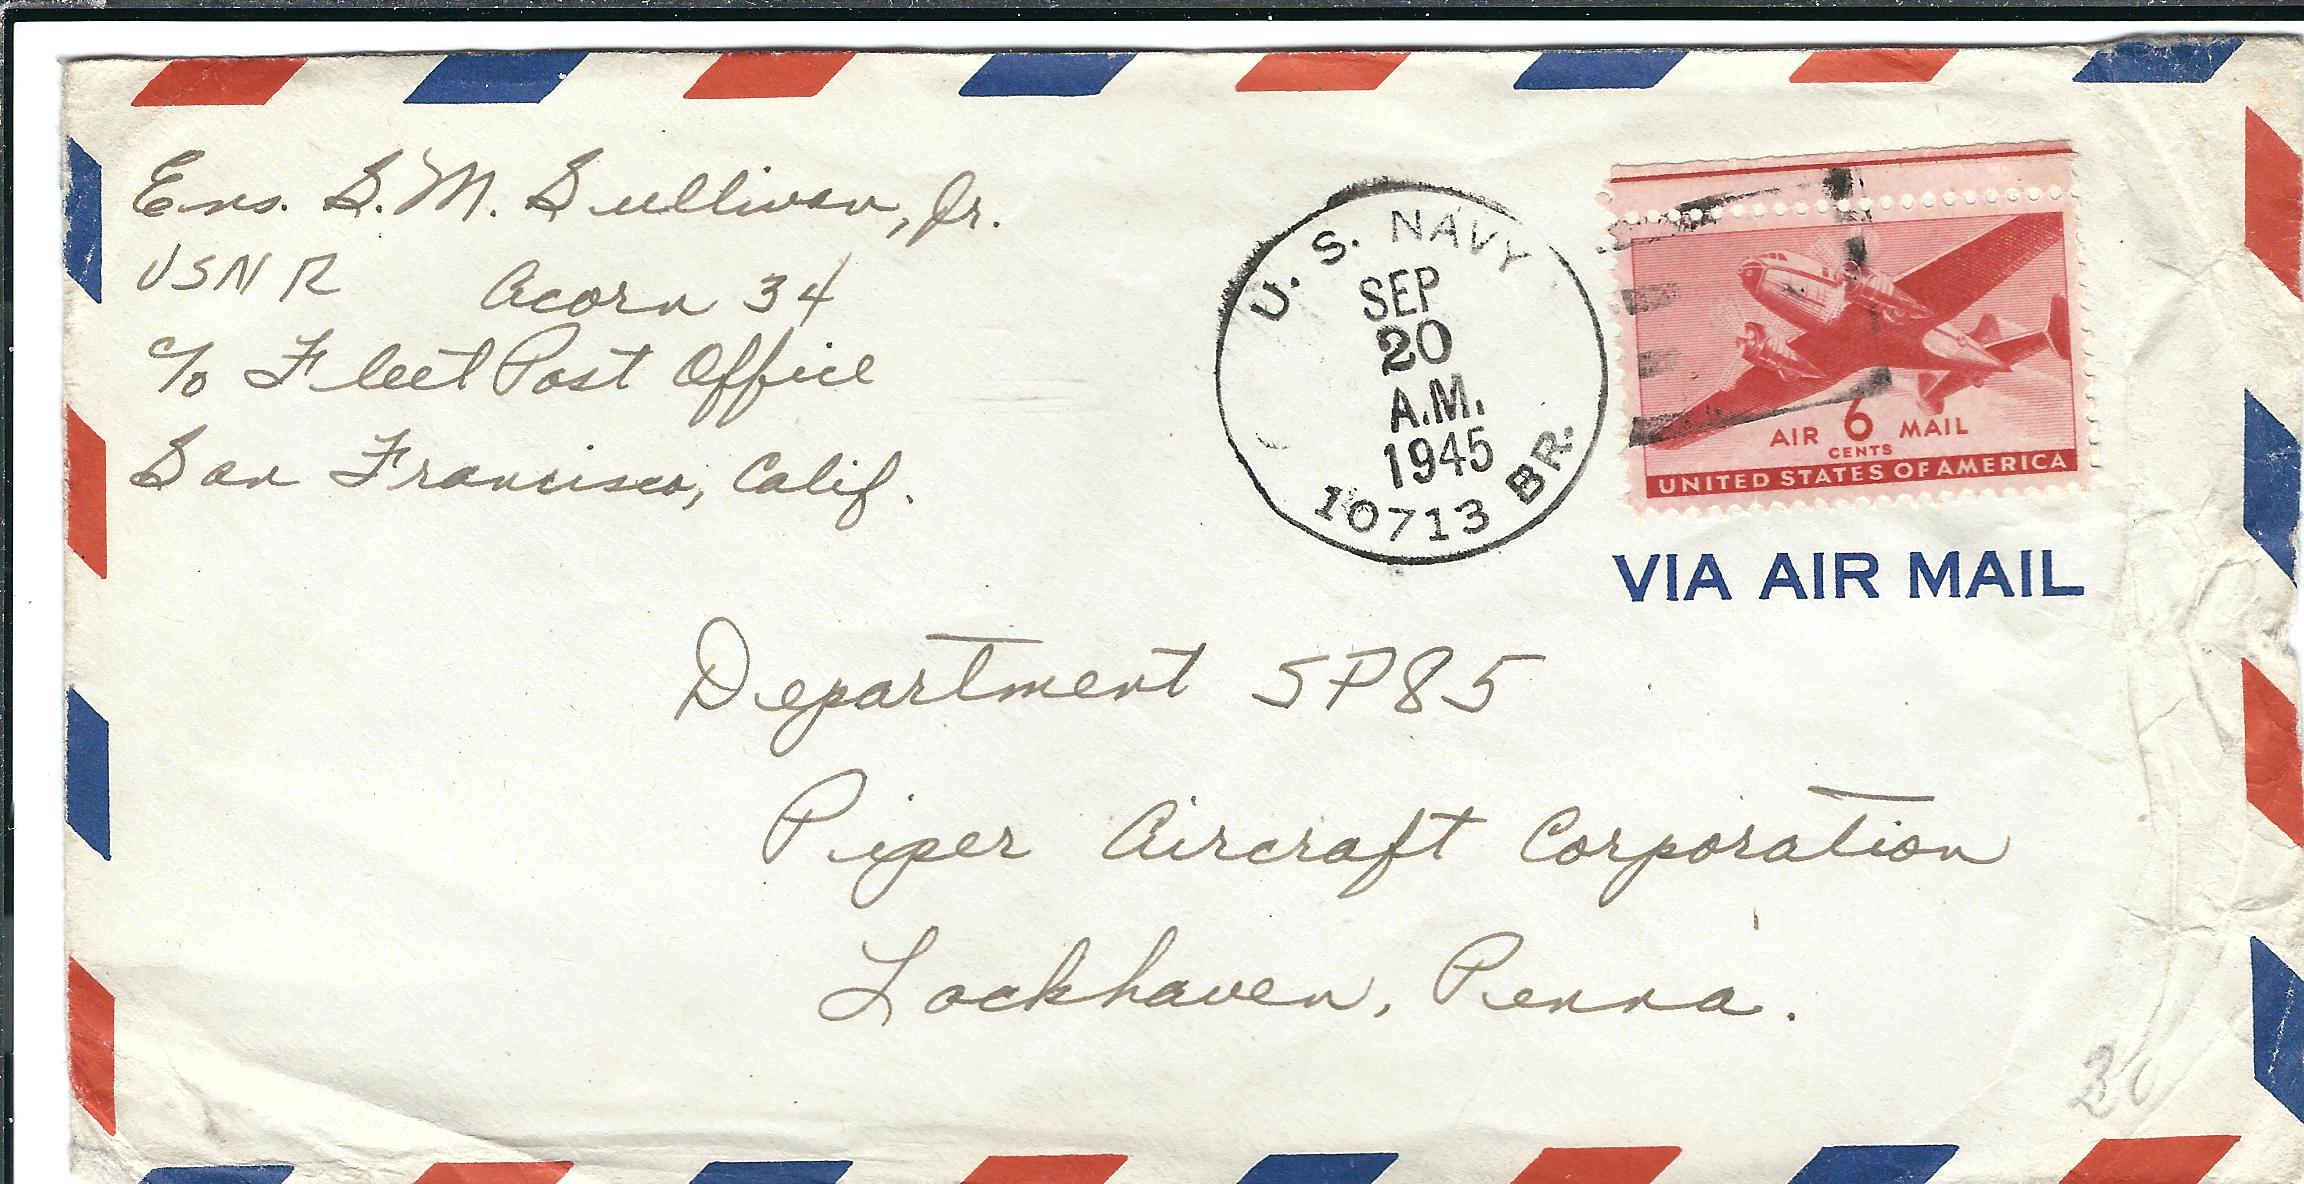 Ens. S. M. Sullivan, Jr.
USNR Acorn 34
c/o Fleet Post Office
San Francisco, Calif.
U. S. NAVY
SEP
20
A.M.
1945
10713 BR.
AIR 6 MAIL
CENTS
UNITED STATES OF AMERICA
VIA AIR MAIL
Department SP85
Piper Aircraft Corporation
Lockhaven, Penna.